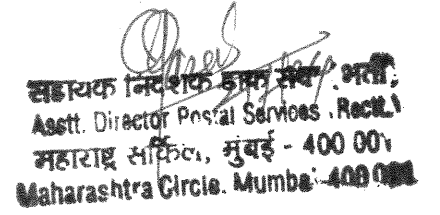 सहायक निदेशक डाक सेवा भर्ती,
Asstt. Director Postal Services, Rectt.)
महाराष्ट्र सर्किल, मुंबई - 400 001
Maharashtra Circle, Mumbai